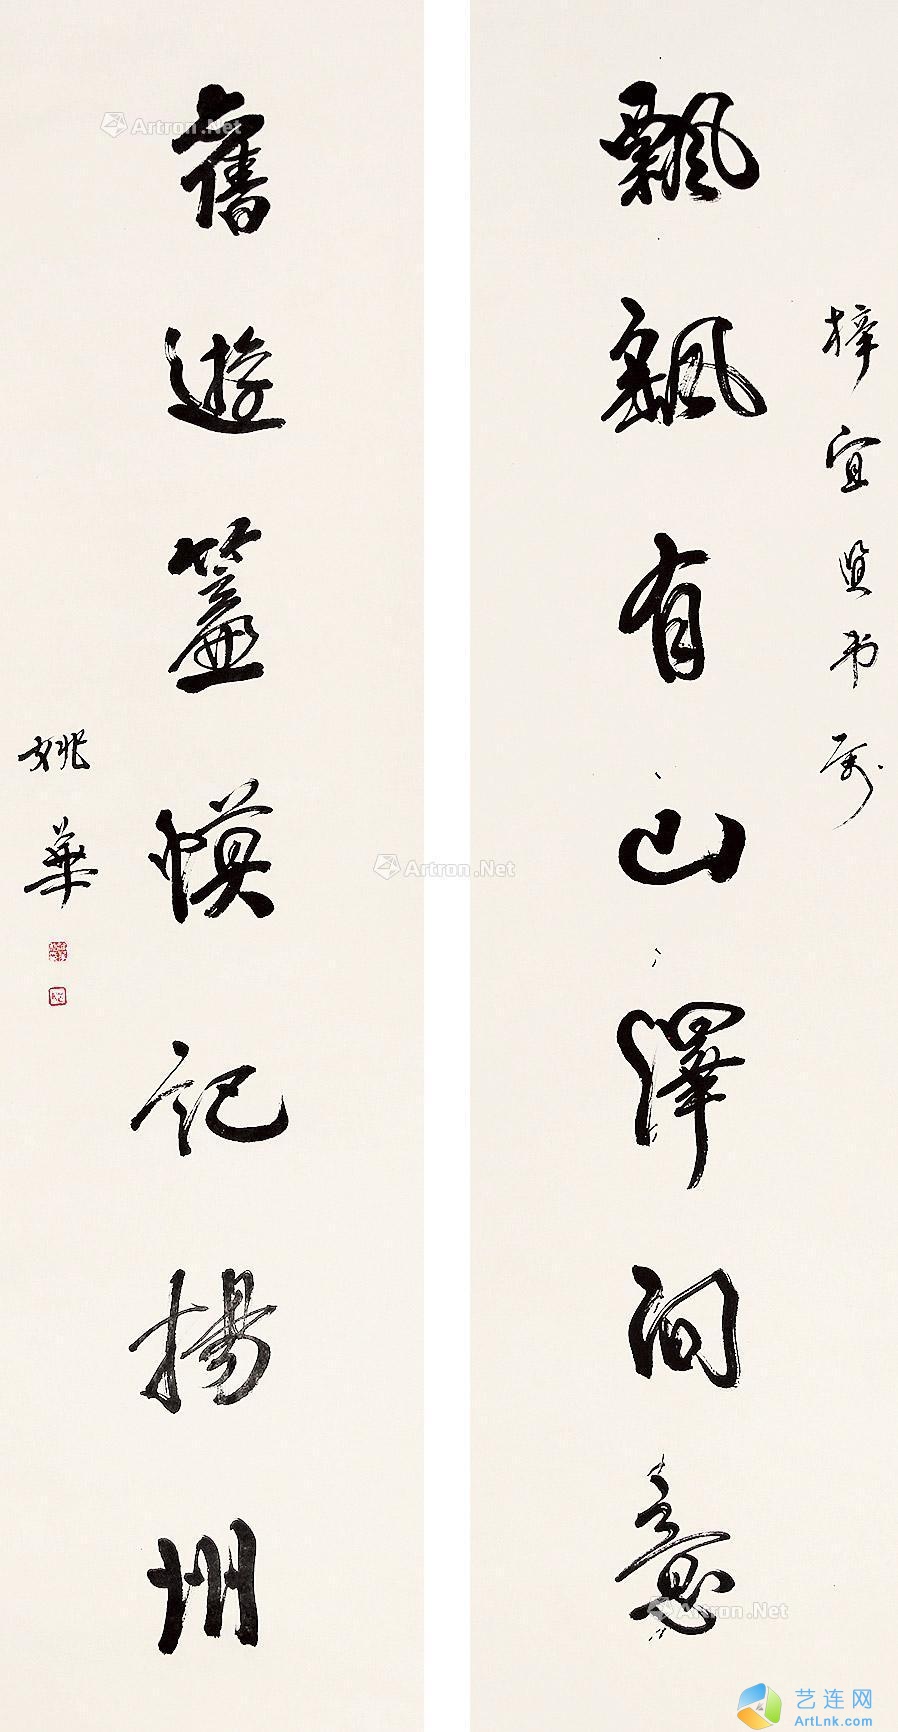 飄飄有山澤間意
梓宜賢弟屬
舊遊簾幙記揚州
姚華
Artron.Net
Artron.Net
Artron.Net
艺连网
ArtLnk.com